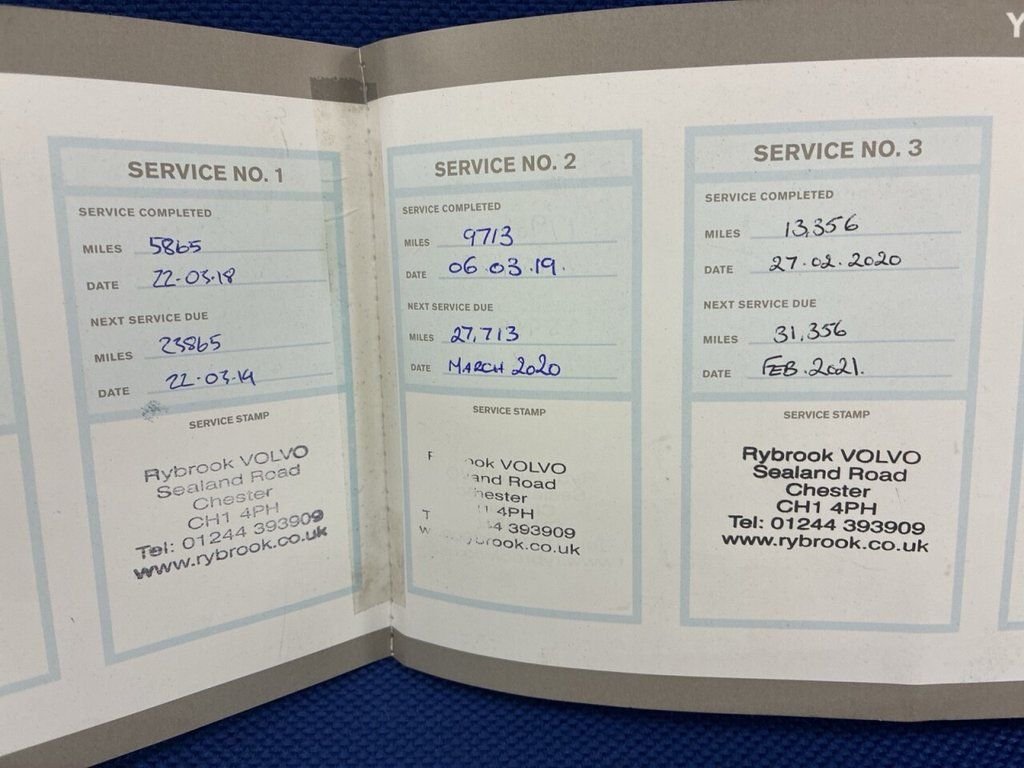 Y
SERVICE NO. 1
SERVICE COMPLETED
MILES 5865
DATE 22-03-18
NEXT SERVICE DUE
MILES 23865
DATE 22-03-19
SERVICE STAMP
Rybrook VOLVO
Sealand Road
Chester
CH1 4PH
Tel: 01244 393909
www.rybrook.co.uk
SERVICE NO. 2
SERVICE COMPLETED
MILES 9713
DATE 06.03.19.
NEXT SERVICE DUE
MILES 27,713
DATE MARCH 2020
SERVICE STAMP
ook VOLVO
and Road
hester
4PH
4 393909
rook.co.uk
SERVICE NO. 3
SERVICE COMPLETED
MILES 13,356
DATE 27.02.2020
NEXT SERVICE DUE
MILES 31,356
DATE FEB.2021.
SERVICE STAMP
Rybrook VOLVO
Sealand Road
Chester
CH1 4PH
Tel: 01244 393909
www.rybrook.co.uk